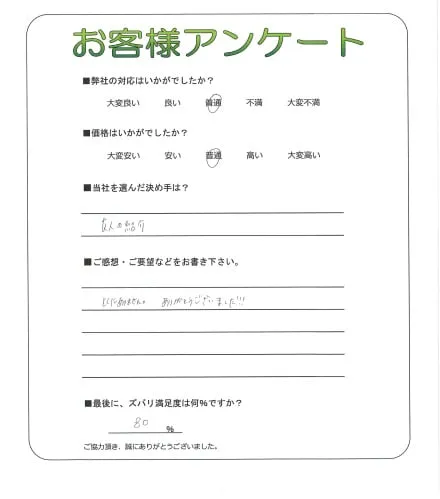 お客様アンケート
■弊社の対応はいかがでしたか？
大変良い 良い 普通 不満 大変不満
■価格はいかがでしたか？
大変安い 安い 普通 高い 大変高い
■当社を選んだ決め手は？
友人の紹介
■ご感想・ご要望などをお書き下さい。
とくにありません。 ありがとうございました!!!
■最後に、ズバリ満足度は何％ですか？
80 ％
ご協力頂き、誠にありがとうございました。